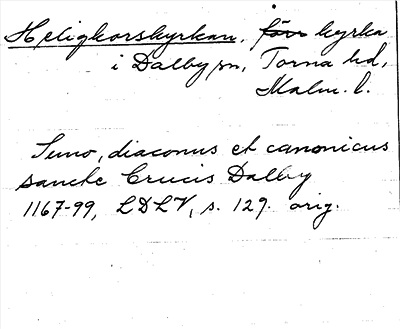 Heligkorskyrkan, förr kyrka
i Dalby sn, Torna hd,
Malm. l.
Suno, diaconus et canonicus
sancte Crucis Dalby
1167-99, LDLV, s. 129. orig.